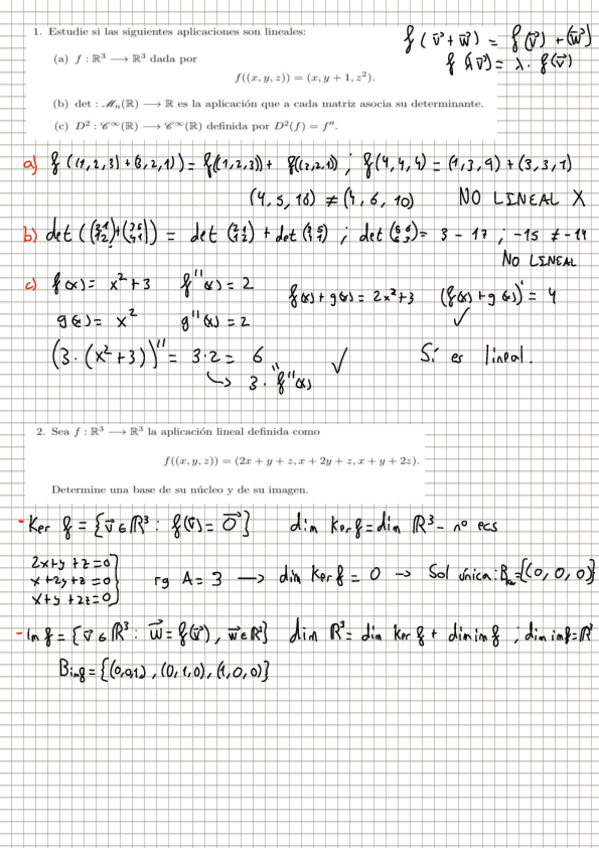 1. Estudie si las siguientes aplicaciones son lineales:
f(v⃗+w⃗) = f(v⃗)+(w⃗)
(a) f : ℝ³ ⟶ ℝ³ dada por
f(λv⃗) = λ · f(v⃗)
f((x, y, z)) = (x, y + 1, z²).
(b) det : ℳₙ(ℝ) ⟶ ℝ es la aplicación que a cada matriz asocia su determinante.
(c) D² : 𝒞^∞(ℝ) ⟶ 𝒞^∞(ℝ) definida por D²(f) = f''.
a) f((1,2,3)+(3,2,1)) = f((1,2,3)) + f((3,2,1)) ; f(4,4,4) = (1,3,9)+(3,3,1)
(4,5,16) ≠ (4,6,10) NO LINEAL X
b) det = det + det ; det = 3 - 17 ; -15 ≠ -14
NO LINEAL
c) f(x) = x²+3 f''(x) = 2 f(x)+g(x) = 2x²+3 (f(x)+g(x))' = 4
g(x) = x² g''(x) = 2 ✓
(3·(x²+3))'' = 3·2 = 6 ✓ Sí es lineal.
↳ 3·f''(x)
2. Sea f : ℝ³ ⟶ ℝ³ la aplicación lineal definida como
f((x, y, z)) = (2x + y + z, x + 2y + z, x + y + 2z).
Determine una base de su núcleo y de su imagen.
- Ker f = {v⃗ ∈ ℝ³ : f(v⃗) = O⃗} dim Ker f = dim ℝ³ - nº ecs
2x+y+z=0
x+2y+z=0 rg A = 3 ⟶ dim Ker f = 0 → Sol única: = {(0,0,0)}
x+y+2z=0
- Im f = {v⃗ ∈ ℝ³ : w⃗ = f(v⃗), w⃗ ∈ ℝ³} dim ℝ³ = dim Ker f + dim im f ; dim im f = ℝ³
B_im f = {(0,0,1), (0,1,0), (1,0,0)}